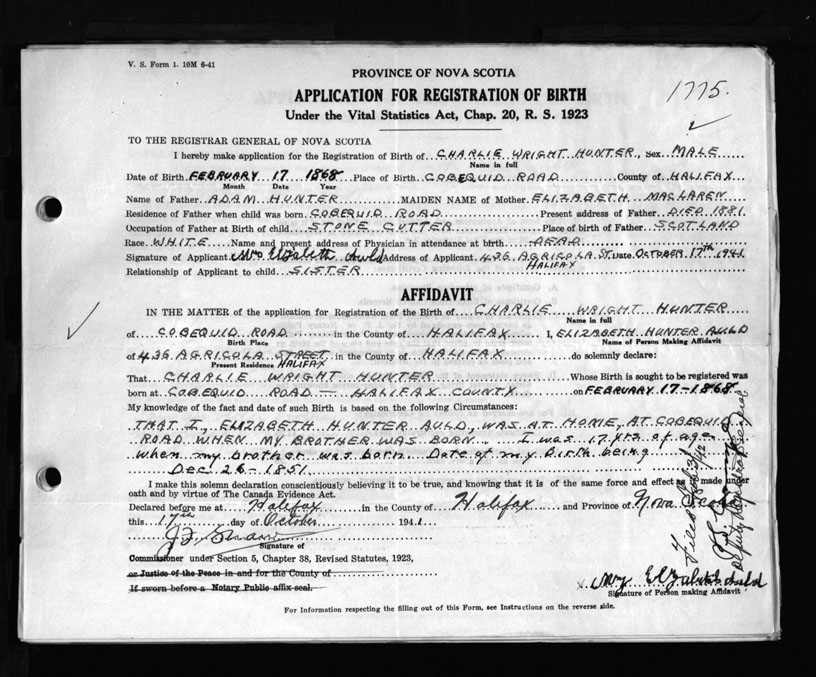 V. S. Form 1. 10M 6-41
PROVINCE OF NOVA SCOTIA
1775.
APPLICATION FOR REGISTRATION OF BIRTH
Under the Vital Statistics Act, Chap. 20, R. S. 1923
TO THE REGISTRAR GENERAL OF NOVA SCOTIA
I hereby make application for the Registration of Birth of CHARLIE WRIGHT HUNTER, Sex MALE
Name in full
Date of Birth FEBRUARY 17 1868 Place of Birth COBEQUID ROAD County of HALIFAX
Month Date Year
Name of Father ADAM HUNTER MAIDEN NAME of Mother ELIZABETH MACLAREN
Residence of Father when child was born COBEQUID ROAD Present address of Father DIED 1881.
Occupation of Father at Birth of child STONE CUTTER Place of birth of Father SCOTLAND
Race WHITE Name and present address of Physician in attendance at birth DEAD
Signature of Applicant Mrs Elizabeth Auld Address of Applicant 436 AGRICOLA ST. Date OCTOBER 17th 1941
HALIFAX
Relationship of Applicant to child SISTER
AFFIDAVIT
IN THE MATTER of the application for Registration of the Birth of CHARLIE WRIGHT HUNTER
Name in full
of COBEQUID ROAD in the County of HALIFAX I, ELIZABETH HUNTER AULD
Birth Place Name of Person Making Affidavit
of 436 AGRICOLA STREET in the County of HALIFAX do solemnly declare:
Present Residence HALIFAX
That CHARLIE WRIGHT HUNTER Whose Birth is sought to be registered was
born at COBEQUID ROAD — HALIFAX COUNTY on FEBRUARY 17-1868
My knowledge of the fact and date of such Birth is based on the following Circumstances:
THAT I, ELIZABETH HUNTER AULD, WAS AT HOME, AT COBEQUID
ROAD WHEN MY BROTHER WAS BORN. I was 17 yrs of age
when my brother was born. Date of my birth being
Dec 26-1851.
I make this solemn declaration conscientiously believing it to be true, and knowing that it is of the same force and effect as if made under
oath and by virtue of The Canada Evidence Act.
Declared before me at Halifax in the County of Halifax and Province of Nova Scotia
this 17th day of October 1941
Signature of
Commissioner under Section 5, Chapter 38, Revised Statutes, 1923,
or Justice of the Peace in and for the County of
If sworn before a Notary Public affix seal.
Mrs Elizabeth Auld
Signature of Person making Affidavit
For Information respecting the filling out of this Form, see Instructions on the reverse side.
Deputy Registrar General